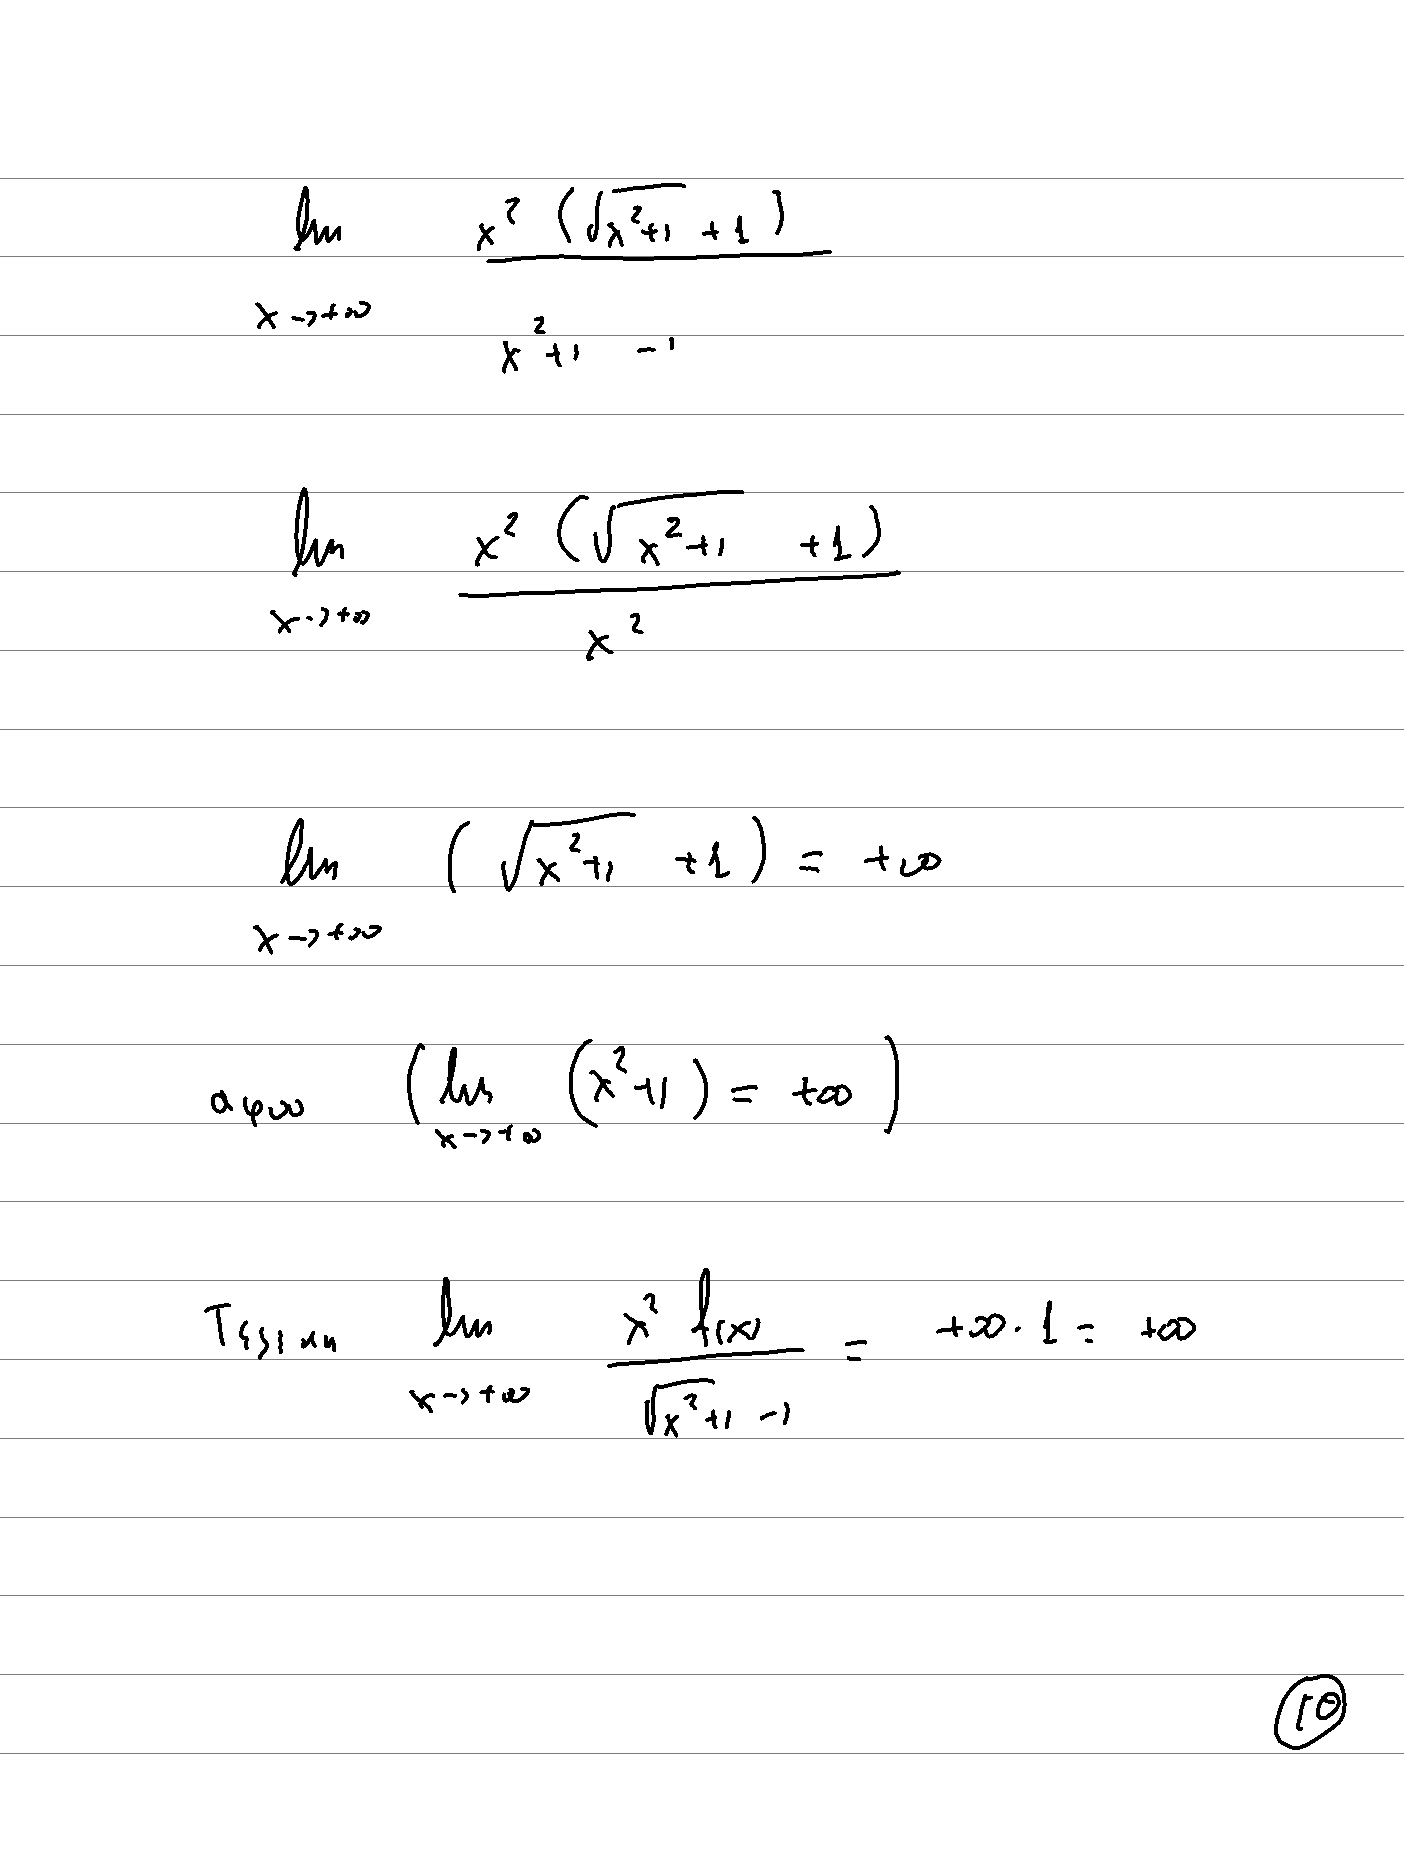 lim x² (√(x²+1) + 1)
x→+∞ x²+1 -1
lim x² (√(x²+1) +1)
x→+∞ x²
lim (√(x²+1) +1) = +∞
x→+∞
αφου (lim (x²+1) = +∞)
x→+∞
Τελικα lim x² f(x) = +∞·1 = +∞
x→+∞ √(x²+1) -1
10